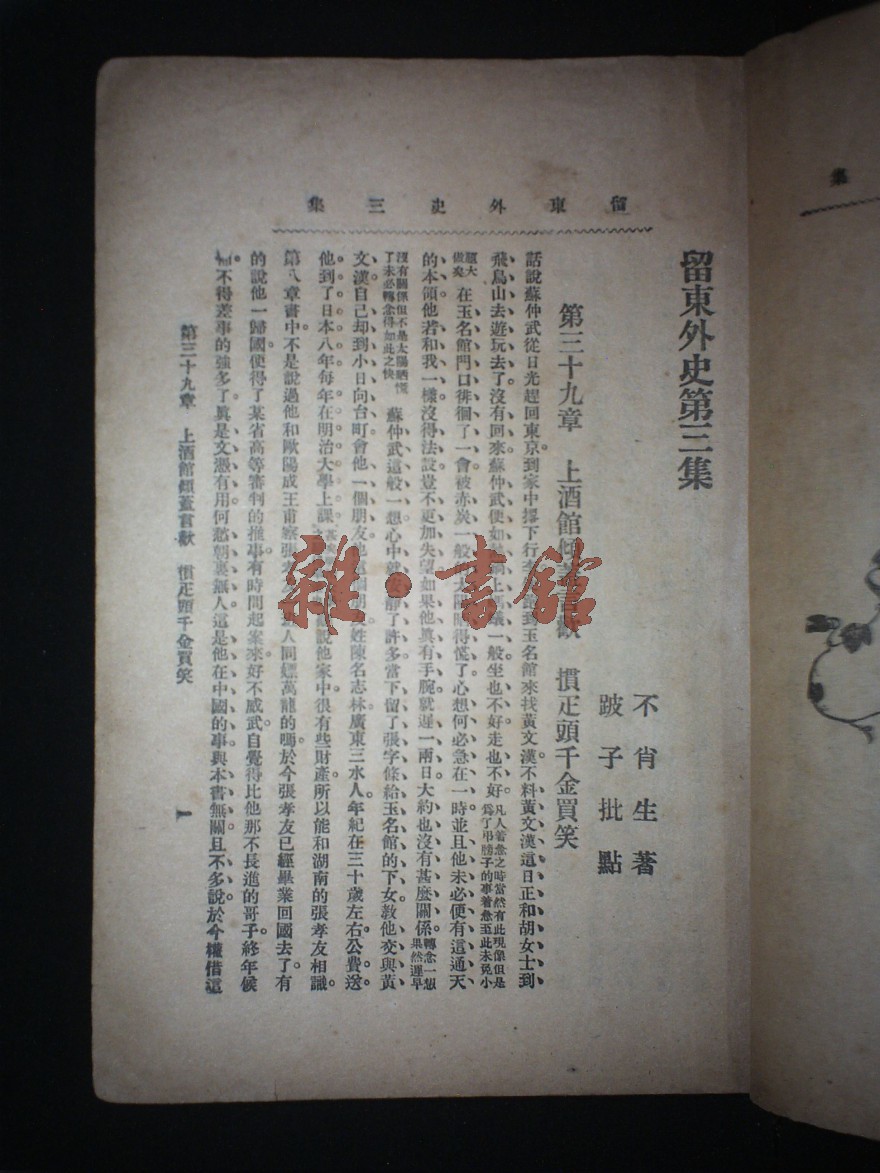 留東外史三集
集
留東外史第三集
不肖生著
跛子批點
第三十九章 上酒館傾蓋言歡 慣疋頭千金買笑
話說蘇仲武從日光趕回東京到家中撂下行李到玉名館來找黃文漢不料黃文漢這日正和胡女士到
飛鳥山去遊玩去了沒有回來蘇仲武便如熱鍋上螞蟻一般坐也不好走也不好凡人着急之時當然有此現像但是爲了吊膀子的事着急至此未免小
題大做矣在玉名館門口徘徊了一會被赤炭一般的太陽晒得慌了心想何必急在一時並且他未必便有這通天
的本領他若和我一樣沒得法設豈不更加失望如果他眞有手腕就遲一兩日大約也沒有甚麽關係轉念一想果然遲早
沒有關係但不是太陽晒慌了未必轉念得如此之快蘇仲武這般一想心中就安靜了許多當下留了張字條給玉名館的下女敎他交與黃
文漢自己却到小日向台町會他一個朋友他這個朋友姓陳名志林廣東三水人年紀在三十歲左右公費送
他到了日本八年每年在明治大學上課說他家中很有些財產所以能和湖南的張孝友相識
第八章書中不是說過他和歐陽成王甫察張孝友一班人同嫖萬龍的嗎於今張孝友已經畢業回國去了有
的說他一歸國便得了某省高等審判的推事有時間起案來好不威武自覺得比他那不長進的哥子終年候
不得差事的強多了眞是文憑有用何愁朝裏無人這是他在中國的事與本書無關且不多說於今權借這
第三十九章 上酒館傾蓋言歡 慣疋頭千金買笑
一
雜·書館